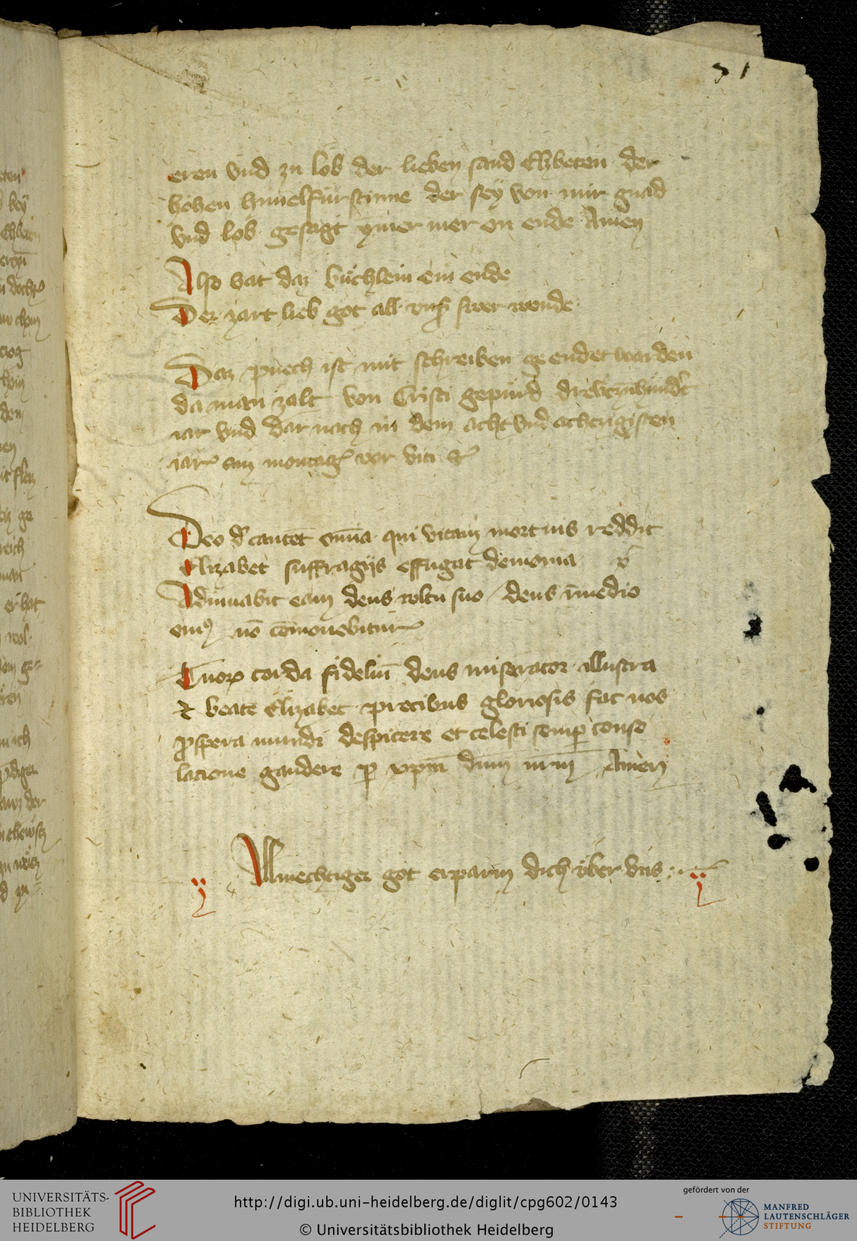 71
eren vnd zu lob der lieben sand Elizbeten der
hohen himelfürstinne der sey von mir gnad
vnd lob gesagt ymer mer on ende Amen
Also hat daz büchlein ein ende
Der zart lieb got all vnß swer wende
Daz puech ist mit schreiben geendet warden
da man zalt von Cristi gepurd drewzehundt
iar vnd dar nach in dem acht vnd achczigisten
iar am montag vor viti
Deo decantet omia qui vitam mortuis reddit
Elizabet suffragijs effugat demonia
Adiuuabit eam deus voltu suo deus i medio
eius no comouebitur
Tuorum corda fidelium deus miserator illustra
et beate Elizabet precibus gloriosis fac nos
prospera mundi despicere et celesti semper conso
lacione gaudere per xpm dnm nrm Amen
Allmechtiger got erparm dich vber vns
UNIVERSITÄTS-
BIBLIOTHEK
HEIDELBERG
http://digi.ub.uni-heidelberg.de/diglit/cpg602/0143
© Universitätsbibliothek Heidelberg
gefördert von der
MANFRED
LAUTENSCHLÄGER
STIFTUNG